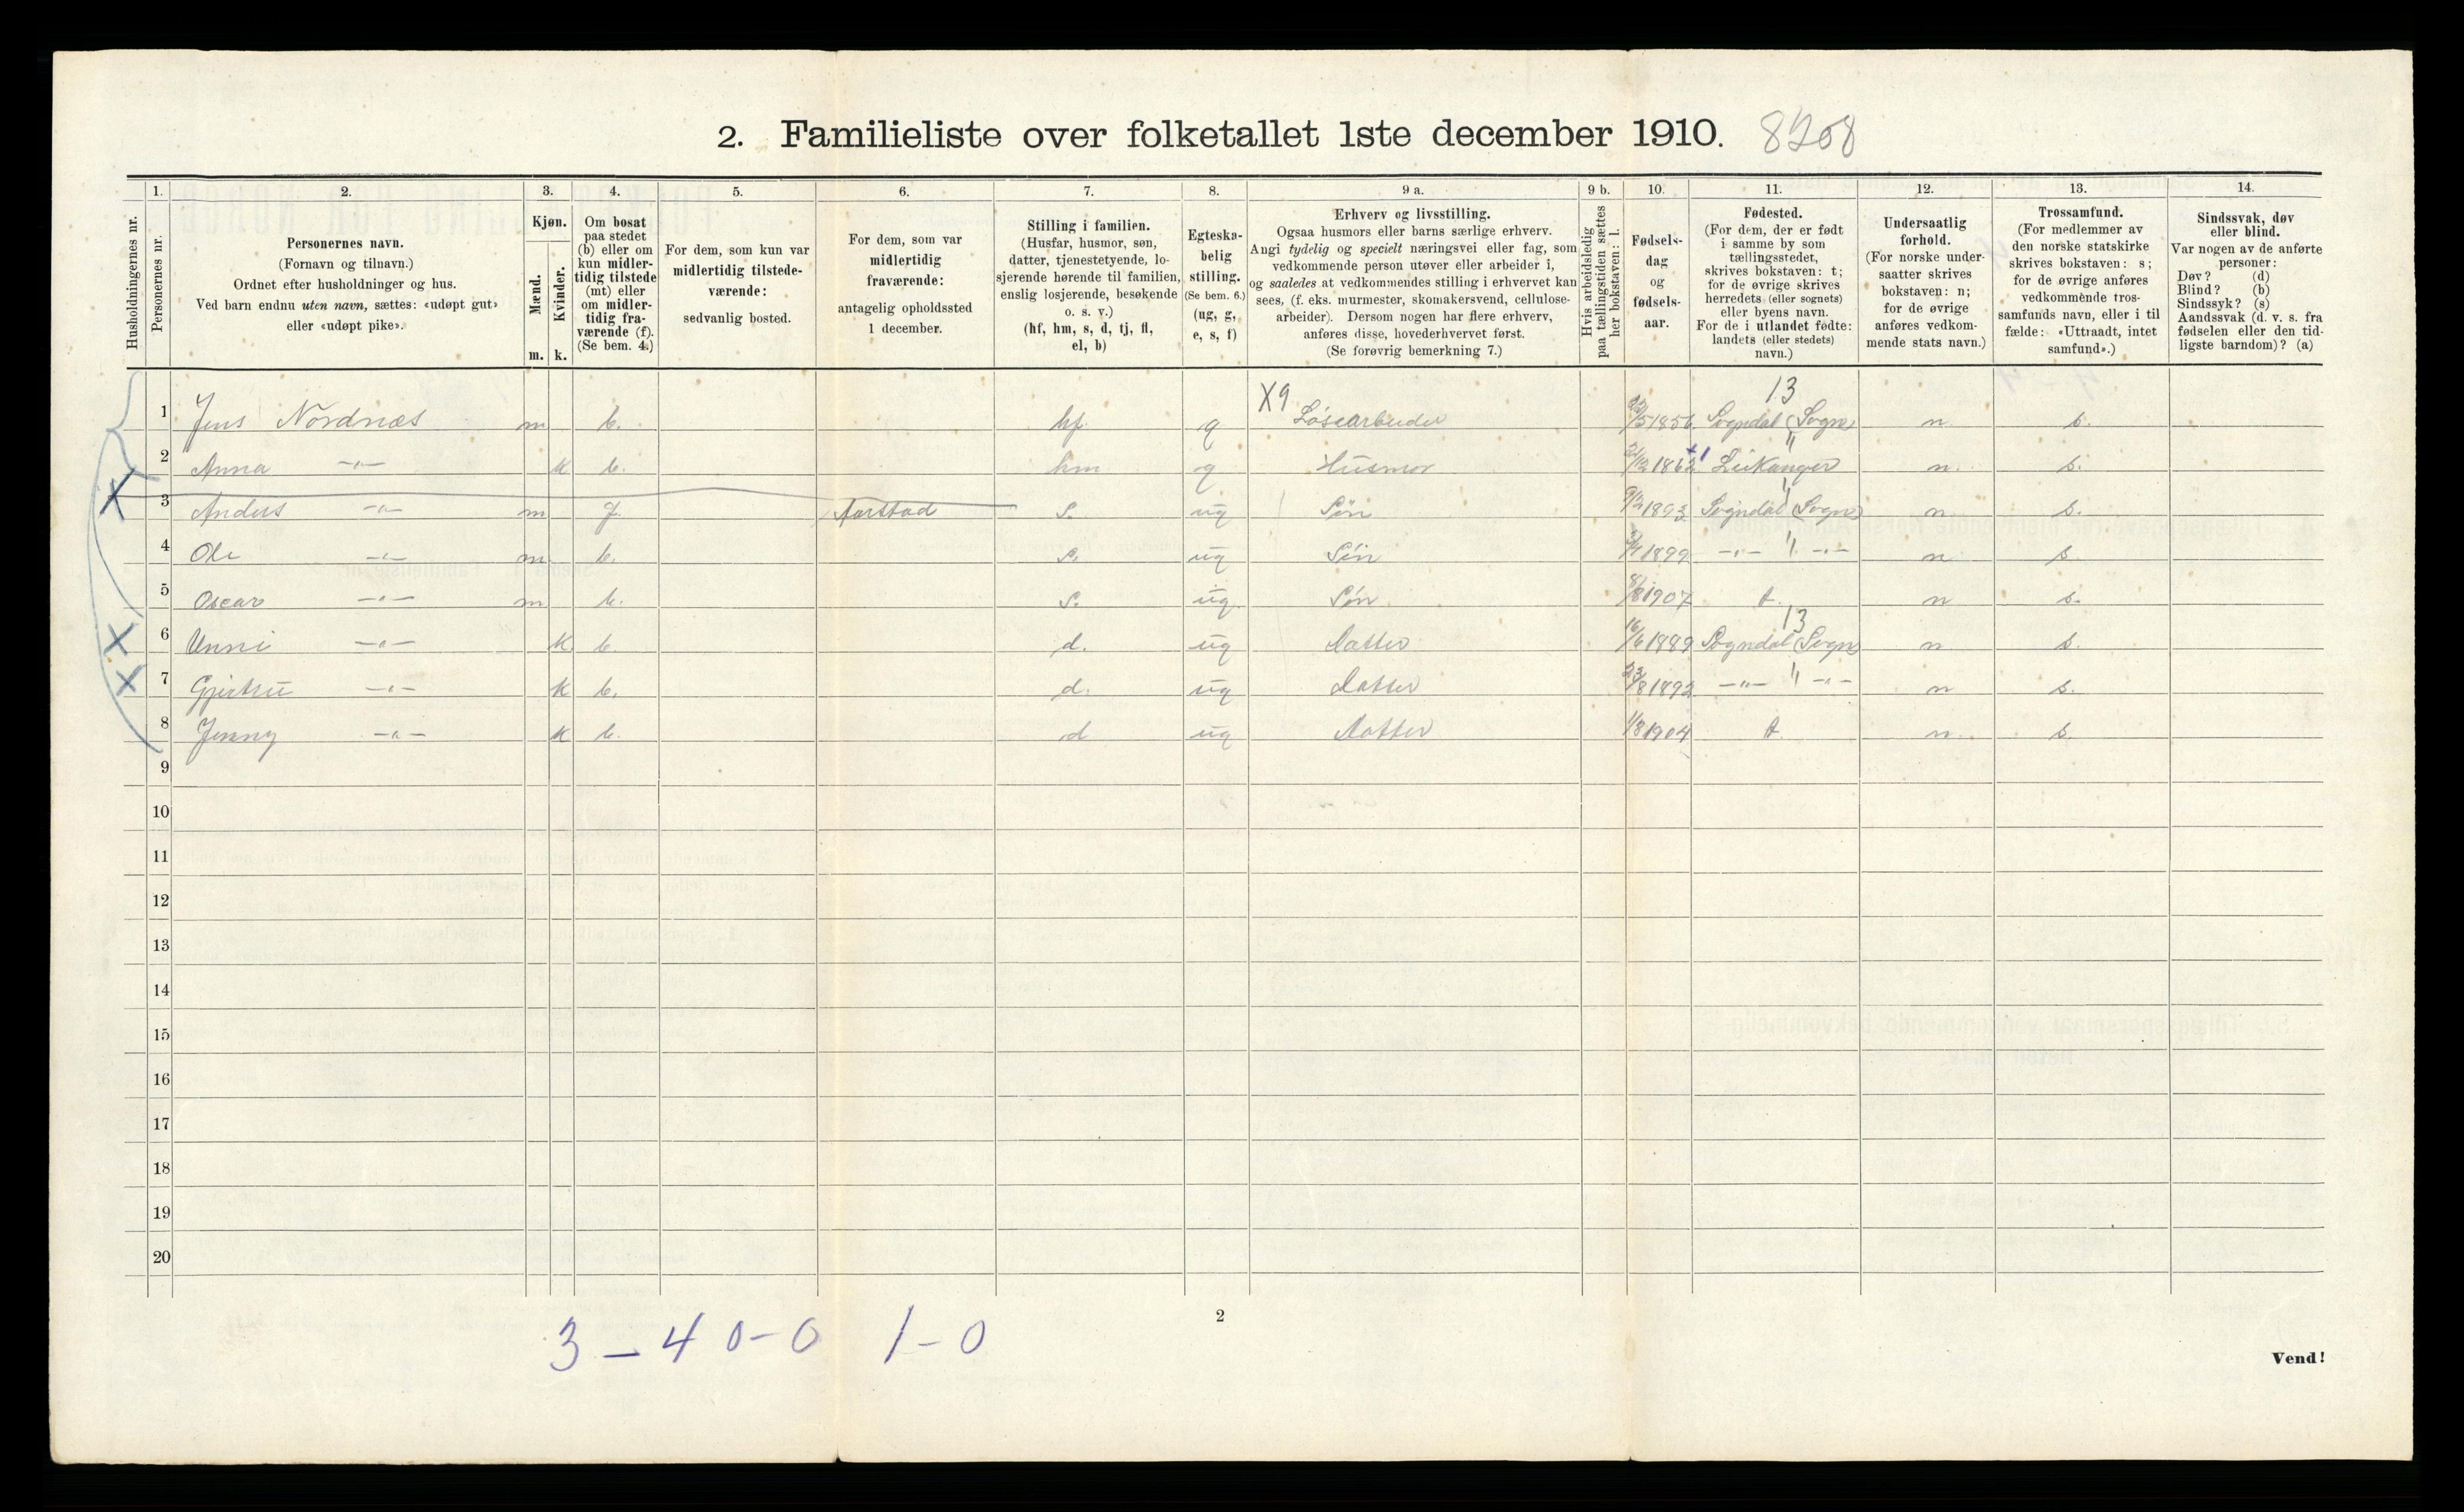 2. Familieliste over folketallet 1ste december 1910. 8208
Husholdningernes nr.
1. Personernes nr.
2. Personernes navn. (Fornavn og tilnavn.) Ordnet efter husholdninger og hus. Ved barn endnu uten navn, sættes: «udøpt gut» eller «udøpt pike».
3. Kjøn. Mænd. m. Kvinder. k.
4. Om bosat paa stedet (b) eller om kun midlertidig tilstede (mt) eller om midlertidig fraværende (f). (Se bem. 4.)
5. For dem, som kun var midlertidig tilstedeværende: sedvanlig bosted.
6. For dem, som var midlertidig fraværende: antagelig opholdssted 1 december.
7. Stilling i familien. (Husfar, husmor, søn, datter, tjenestetyende, losjerende hørende til familien, enslig losjerende, besøkende o. s. v.) (hf, hm, s, d, tj, fl, el, b)
8. Egteskabelig stilling. (Se bem. 6.) (ug, g, e, s, f)
9 a. Erhverv og livsstilling. Ogsaa husmors eller barns særlige erhverv. Angi tydelig og specielt næringsvei eller fag, som vedkommende person utøver eller arbeider i, og saaledes at vedkommendes stilling i erhvervet kan sees, (f. eks. murmester, skomakersvend, cellulosearbeider). Dersom nogen har flere erhverv, anføres disse, hovederhvervet først. (Se forøvrig bemerkning 7.)
9 b. Hvis arbeidsledig paa tællingstiden sættes her bokstaven: l.
10. Fødselsdag og fødselsaar.
11. Fødested. (For dem, der er født i samme by som tællingsstedet, skrives bokstaven: t; for de øvrige skrives herredets (eller sognets) eller byens navn. For de i utlandet fødte: landets (eller stedets) navn.)
12. Undersaatlig forhold. (For norske undersaatter skrives bokstaven: n; for de øvrige anføres vedkommende stats navn.)
13. Trossamfund. (For medlemmer av den norske statskirke skrives bokstaven: s; for de øvrige anføres vedkommende trossamfunds navn, eller i tilfælde: «Uttraadt, intet samfund».)
14. Sindssvak, døv eller blind. Var nogen av de anførte personer: Døv? (d) Blind? (b) Sindssyk? (s) Aandssvak (d. v. s. fra fødselen eller den tidligste barndom)? (a)
X9 13
1 Jens Nordnæs m b. hf. g Løsearbeider /5 1856 Sogndal (Sogn) n s.
2 Anna -"- k b. hm g Husmor /12 1862 Leikanger n. s.
3 Anders -"- m f. Aarstad s. ug Søn 9/2 1893 Sogndal (Sogn) n s.
4 Ole -"- m b. s. ug Søn 1899 -"- " -"- n s.
5 Oscar -"- m b. s. ug Søn 8/8 1907 t. n s.
13
6 Unni -"- k b d. ug Datter 16/6 1889 Sogndal (Sogn) n s.
7 Gjertru -"- k b. d. ug Datter 23/8 1892 -"- " -"- n s.
8 Jenny -"- k b. d ug Datter 1/8 1904 t. n. s.
9
10
11
12
13
14
15
16
17
18
19
20
2
3 - 4 0 - 0 1 - 0
Vend!